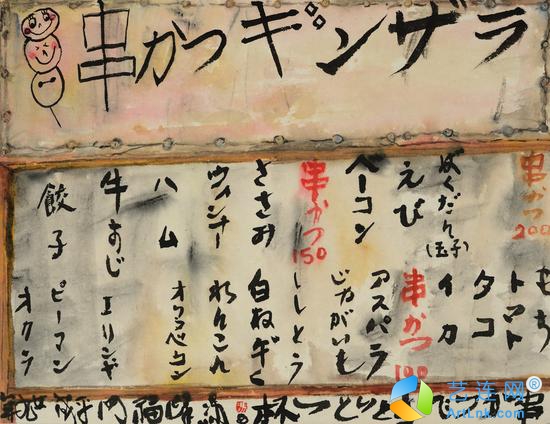 串かつギンザラ
串かつ
200
ばくだん(玉子)
えび
ベーコン
串かつ
150
ささみ
ウィンナー
ハム
牛すじ
餃子
もち
トマト
タコ
イカ
串かつ
100
アスパラ
じゃがいも
ししとう
白ねぎ
れんこん
オクラベーコン
エリンギ
ピーマン
オクラ
艺连网®
ArtLnk.com